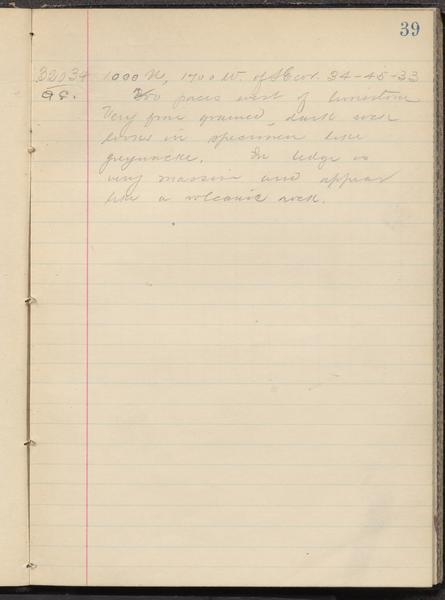 39
32034 1000 N, 1700 W. of SE cor. 34-45-33
200 paces west of limestone
Very fine grained, dark rock
looks in specimen like
greywacke. In ledge is
very massive and appears
like a volcanic rock.